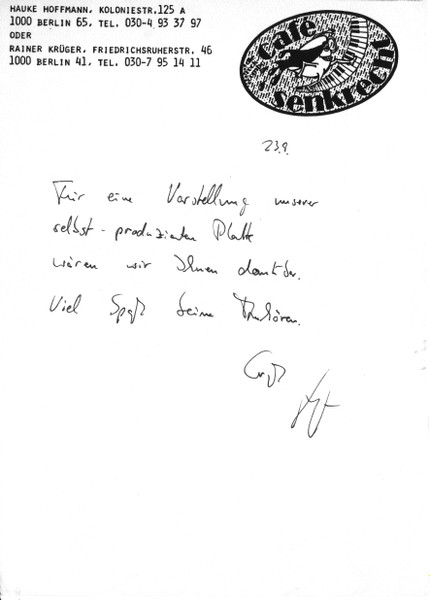 HAUKE HOFFMANN, KOLONIESTR.125 A
1000 BERLIN 65, TEL. 030-4 93 37 97
ODER
RAINER KRÜGER, FRIEDRICHSRUHERSTR. 46
1000 BERLIN 41, TEL. 030-7 95 14 11
Cafe
senkrecht
23.9.
Für eine Vorstellung unserer
selbst-produzierten Platte
wären wir Ihnen dankbar.
Viel Spaß beim Anhören.
Gruß